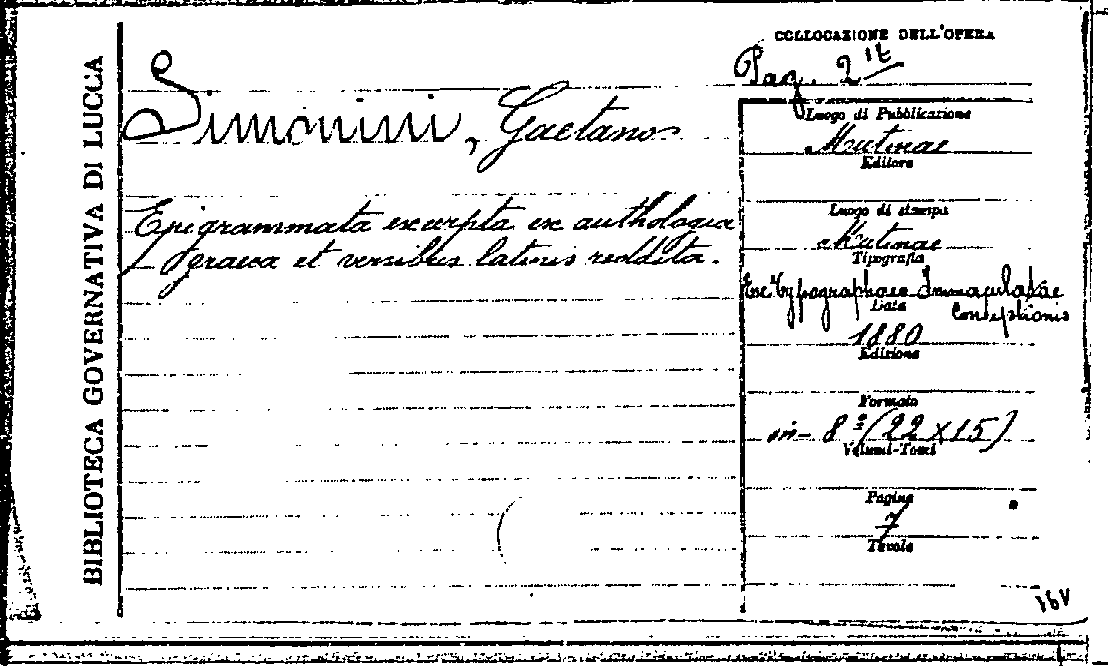 BIBLIOTECA GOVERNATIVA DI LUCCA
COLLOCAZIONE DELL'OPERA
Pag. 2 lt
Simonini, Gaetano
Epigrammata excerpta ex anthologia
graeca et versibus latinis reddita.
Luogo di Pubblicazione
Mutinae
Editore
Luogo di stampa
Mutinae
Tipografia
Ex Typographaeo Immaculatae
Conceptionis
Data
1880
Edizione
Formato
in- 8º (22 x 15)
Volumi-Tomi
Pagine
7
Tavole